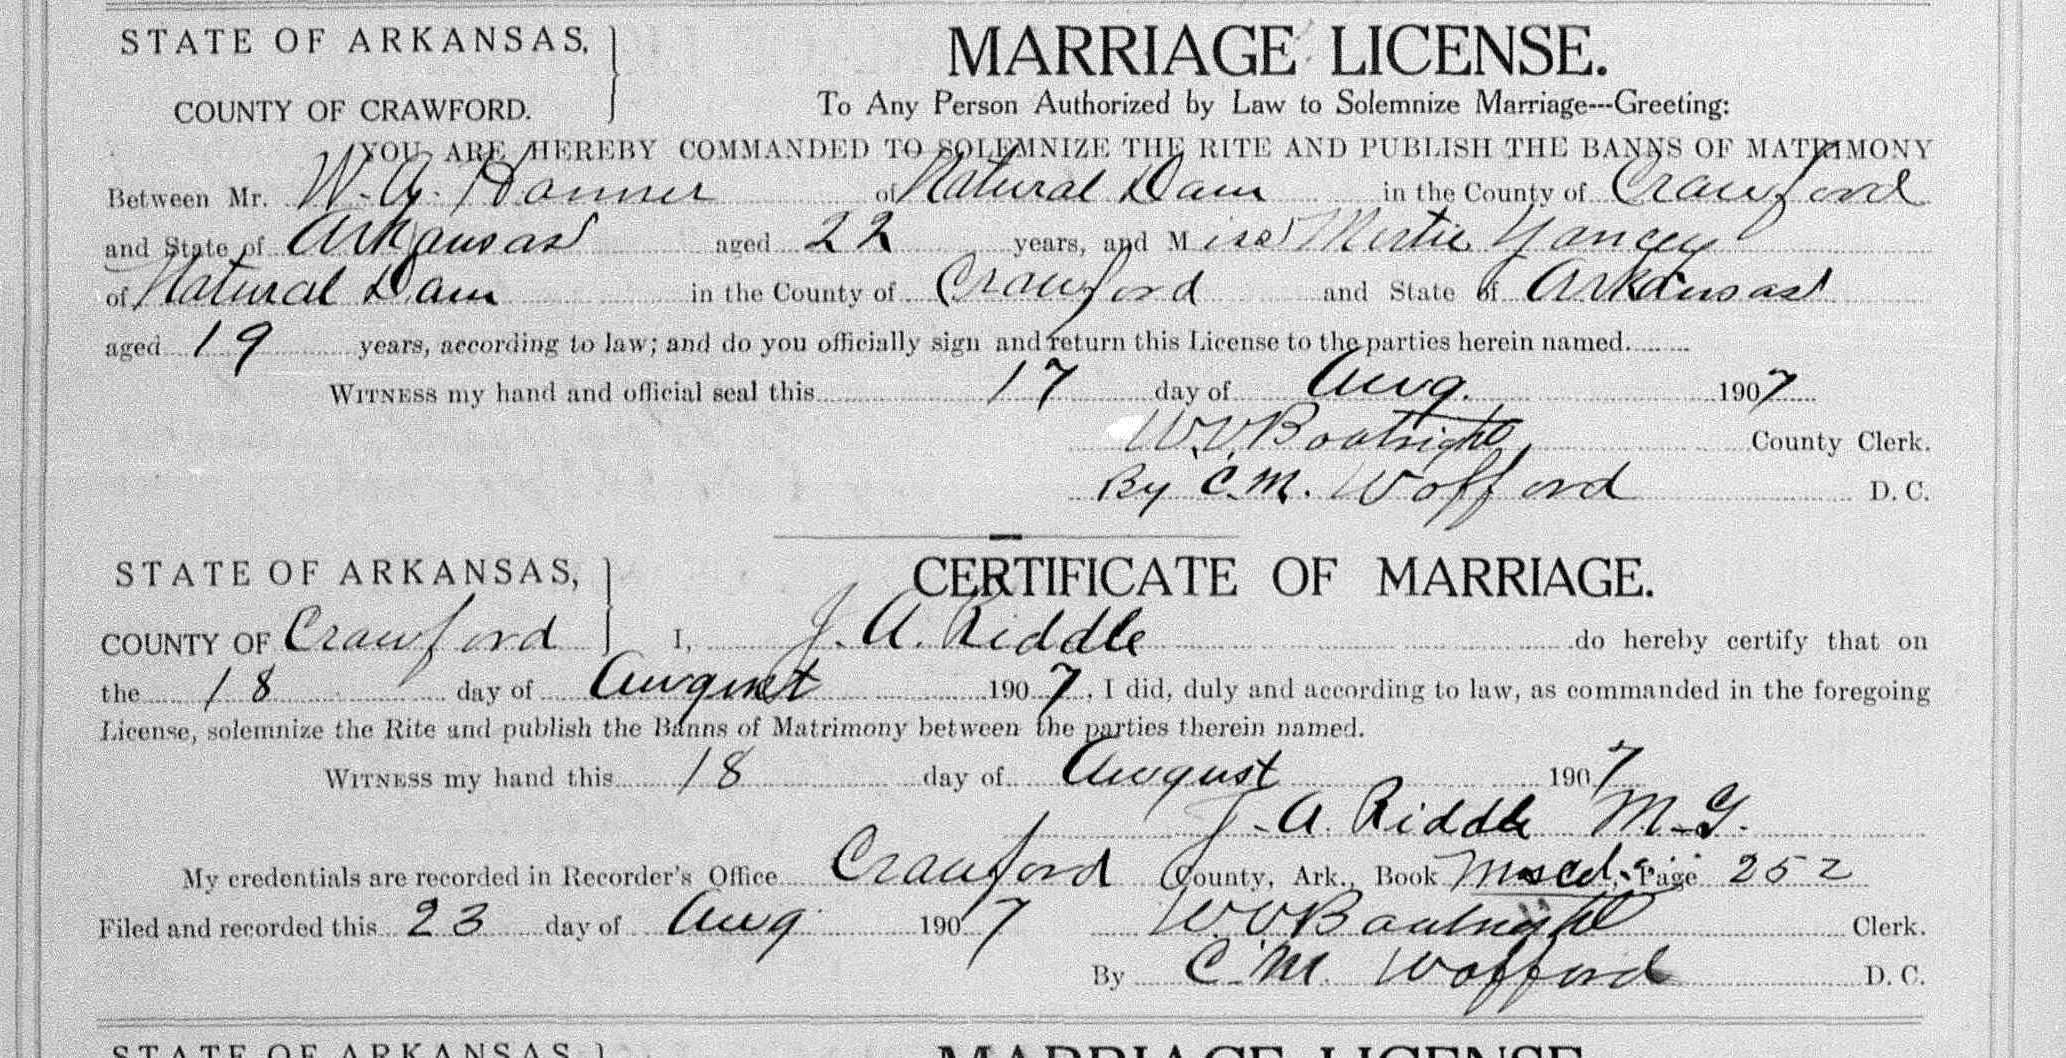 STATE OF ARKANSAS,
COUNTY OF CRAWFORD.
MARRIAGE LICENSE.
To Any Person Authorized by Law to Solemnize Marriage---Greeting:
YOU ARE HEREBY COMMANDED TO SOLEMNIZE THE RITE AND PUBLISH THE BANNS OF MATRIMONY
Between Mr. W. A. Hanner of Natural Dam in the County of Crawford
and State of Arkansas aged 22 years, and Miss Mertie Yancey
of Natural Dam in the County of Crawford and State of Arkansas
aged 19 years, according to law; and do you officially sign and return this License to the parties herein named.
WITNESS my hand and official seal this 17 day of Aug. 1907
W. V. Boatright County Clerk.
By C. M. Wofford D. C.
STATE OF ARKANSAS,
COUNTY OF Crawford
CERTIFICATE OF MARRIAGE.
I, J. A. Riddle do hereby certify that on
the 18 day of August 1907, I did, duly and according to law, as commanded in the foregoing
License, solemnize the Rite and publish the Banns of Matrimony between the parties therein named.
WITNESS my hand this 18 day of August 1907
J. A. Riddle M. G.
My credentials are recorded in Recorder's Office Crawford County, Ark., Book Page 252
Filed and recorded this 23 day of Aug 1907 W. V. Boatright Clerk.
By C. M. Wofford D. C.
STATE OF ARKANSAS,
MARRIAGE LICENSE